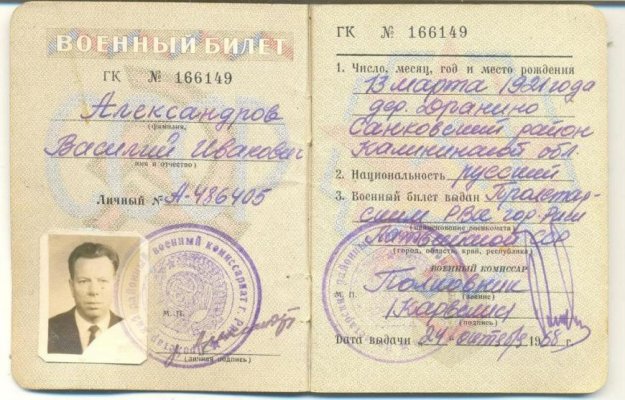 ВОЕННЫЙ БИЛЕТ
ГК № 166149
Александров
(фамилия,
Василий Иванович
имя и отчество)
Личный № А-486405
М. П.
(личная подпись)
ГК № 166149
1. Число, месяц, год и место рождения
13 марта 1921 года
дер. Дранино
Санковский район
Калининской обл.
2. Национальность русский
3. Военный билет выдан Пролетар-
ским РВК гор. Риги
(наименование военкомата)
Латвийской ССР
(город, область, край, республика)
ВОЕННЫЙ КОМИССАР
Полковник
М. П. (звание)
(подпись)
Дата выдачи „24" октября 1968 г.